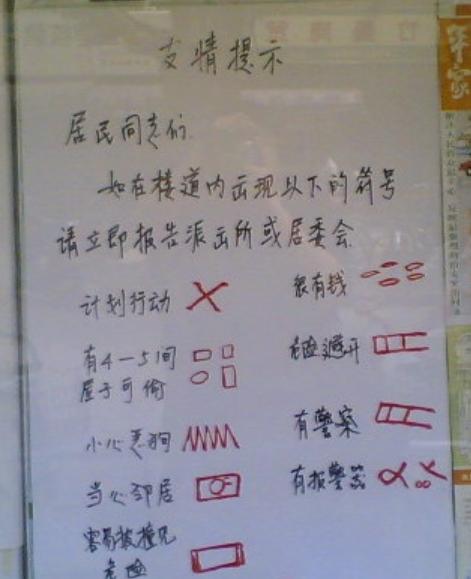 友情提示
居民同志们
如在楼道内出现以下的符号
请立即报告派出所或居委会
计划行动
有4-5间
屋子可偷
小心恶狗
当心邻居
容易被撞见
危险
很有钱
危险避开
有警察
有报警器